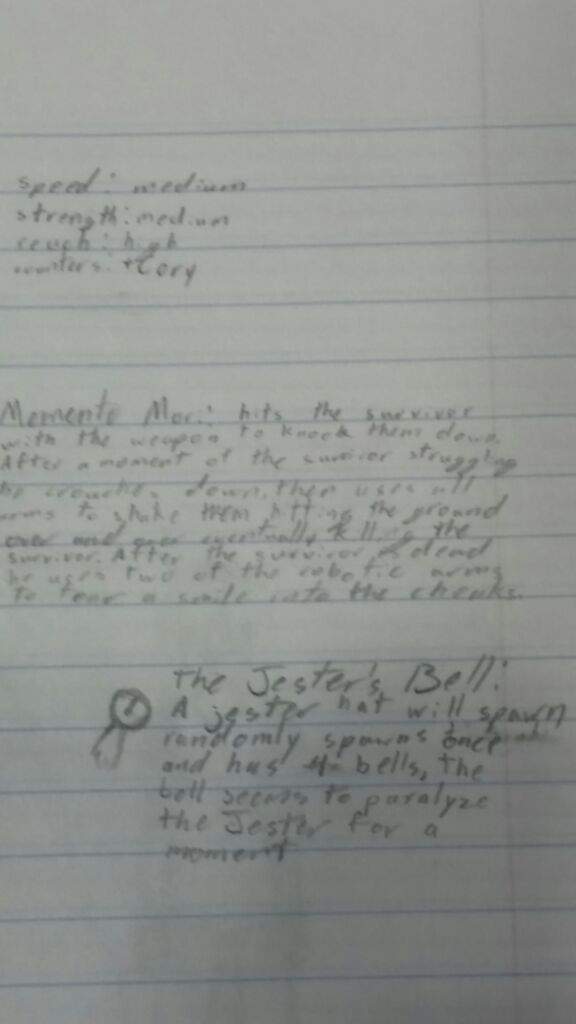 speed: medium
strength: medium
reach: high
counters: +Cory
Momento Mori: hits the survivor
with the weapon to knock them down.
After a moment of the survivor struggling
he crouches down, then uses all
arms to shake them hitting the ground
over and over eventually killing the
survivor. After the survivor dead
he uses two of the robotic arms
to tear a smile into the cheeks.
The Jester's Bell:
A jester hat will spawn
randomly spawns once
and has 4 bells, the
bell seems to paralyze
the Jester for a
moment